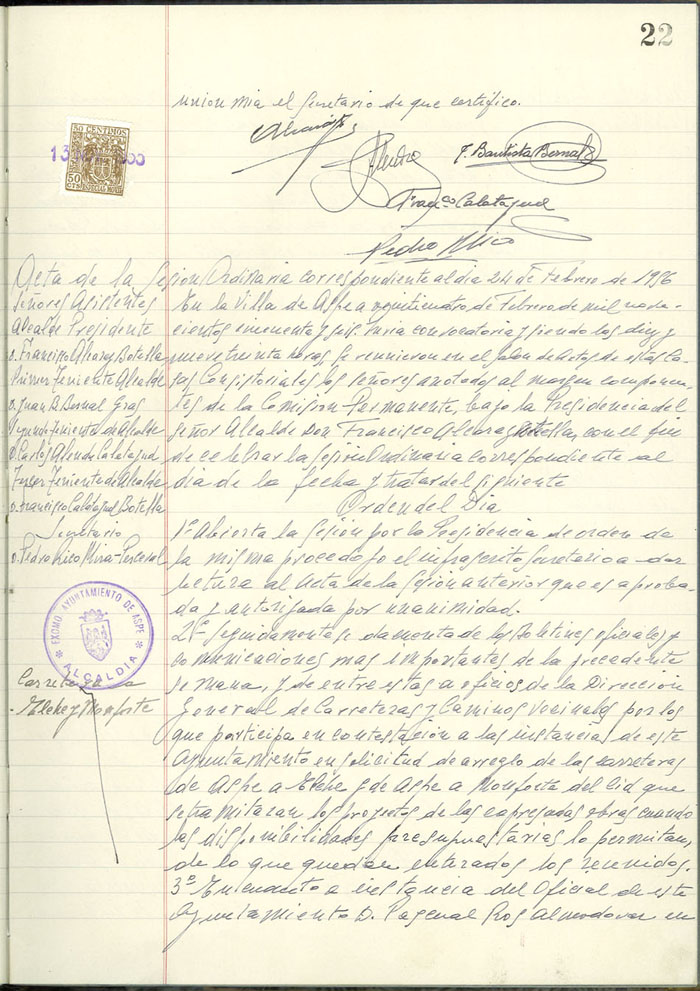 22
union mia el Secretario de que certifico.
50 CENTIMOS
50
CTS ESPECIAL MOVIL
J. Bautista Bernal
Franco Calatayud
Pedro Mira
Acta de la Sesion Ordinaria correspondiente al dia 24 de Febrero de 1956
Señores Asistentes
Alcalde Presidente
D. Francisco Alcaraz Botella
Primer Teniente Alcalde
D. Juan B. Bernal Gras
Segundo Teniente de Alcalde
D. Carlos Calatayud
Tercer Teniente de Alcalde
D. Francisco Calatayud Botella
Secretario
D. Pedro Rico Mira-Perceval
En la Villa de Aspe a veinticuatro de Febrero de mil nove-
cientos cincuenta y seis previa convocatoria y siendo las diez y
nueve treinta horas, se reunieron en el salon de actos de estas Ca-
sas Consistoriales los señores anotados al margen componen-
tes de la Comision Permanente, bajo la Presidencia del
Señor Alcalde Don Francisco Alcaraz Botella, con el fin
de celebrar la sesion Ordinaria correspondiente al
dia de la fecha y tratar del siguiente
Orden del Dia
1º Abierta la Sesión por la Presidencia de orden de
la misma procedo yo el infrascrito Secretario a dar
lectura al Acta de la Sesion anterior que es aproba-
da y autorizada por unanimidad.
2º Seguidamente se da cuenta de los Boletines oficiales y
comunicaciones mas importantes de la precedente
semana, y de entre estas a oficios de la Dirección
General de Carreteras y Caminos Vecinales por los
que participa en contestación a las instancias de este
Ayuntamiento en solicitud de arreglo de las carreteras
de Aspe a Elche y de Aspe a Monforte del Cid que
se tramitaran los proyectos de las expresadas obras cuando
las disponibilidades presupuestarias lo permitan,
de lo que quedan enterados los reunidos.
3º En cuanto a instancia del Oficial de este
Ayuntamiento D. Pascual Ros Almodovar en
EXCMO AYUNTAMIENTO DE ASPE
ALCALDIA
Carretera
Elche y Monforte